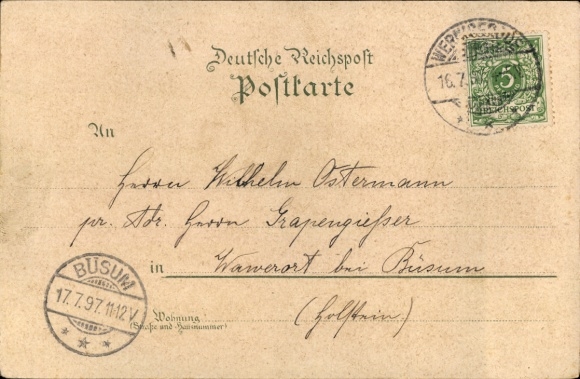 Deutsche Reichspost
Postkarte
16.7.97
5
REICHSPOST
An
Herrn Wilhelm Ostermann
pr. Adr. Herrn Grapengießer
in Wawerort bei Büsum
(Holstein.)
BÜSUM
17.7.97.11-12V
Wohnung
(Straße und Hausnummer)